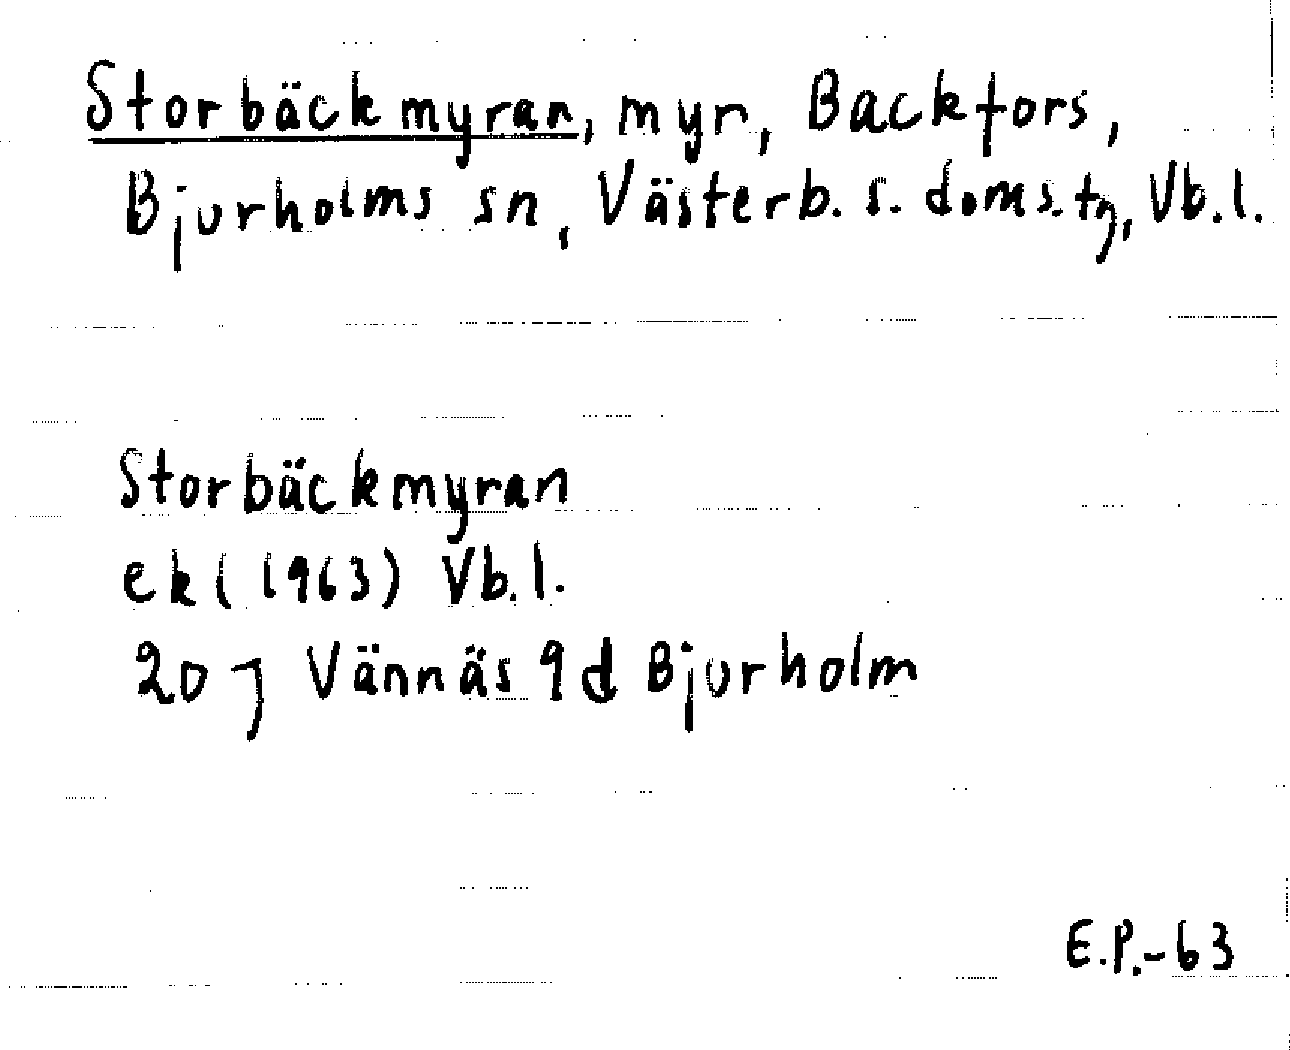 Storbäckmyran, myr, Backfors,
Bjurholms sn, Västerb. s. doms.tg, Vb.l.
Storbäckmyran
ek (1963) Vb.l.
20 J Vännäs 9d Bjurholm
E.P.-63